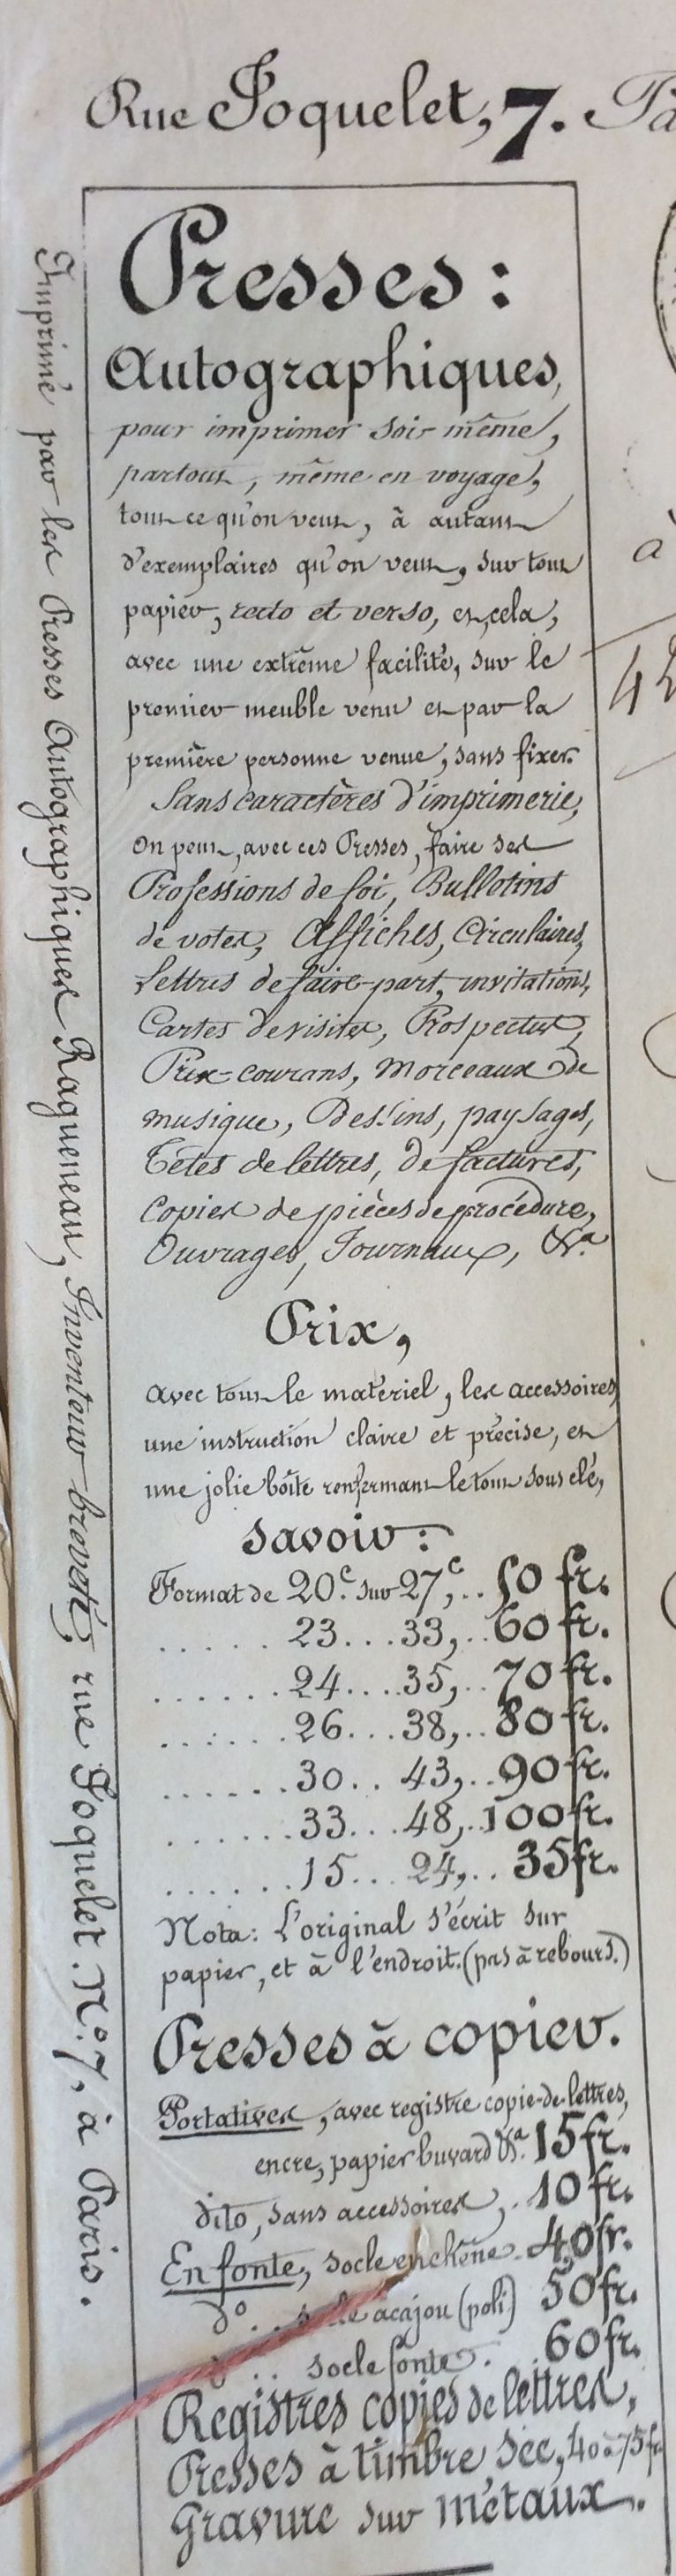 Rue Joquelet, 7. Pa
Presses:
Autographiques,
pour imprimer soi-même,
partout, même en voyage,
tout ce qu'on veut, à autant
d'exemplaires qu'on veut, sur tout
papier, recto et verso, et cela,
avec une extrême facilité, sur le
premier meuble venu et par la
première personne venue, sans fixer.
Sans caractères d'imprimerie,
On peut, avec ces Presses, faire ses
Professions de foi, Bulletins
de votes, Affiches, Circulaires,
Lettres de faire-part, invitations,
Cartes de visites, Prospectus,
Prix-courans, Morceaux de
musique, Dessins, paysages,
Têtes de lettres, de factures,
Copies de pièces de procédure,
Ouvrages, Journaux, &a.
Prix,
avec tout le matériel, les accessoires,
une instruction claire et précise, et
une jolie boîte renfermant le tout sous clé,
savoir:
Format de 20c. sur 27c,.. 50 fr.
...... 23... 33,.. 60 fr.
....... 24.... 35,.. 70 fr.
....... 26... 38,.. 80 fr.
....... 30.. 43,.. 90 fr.
....... 33... 48,.. 100 fr.
....... 15... 24,.. 35 fr.
Nota: L'original s'écrit sur
papier, et à l'endroit. (pas à rebours.)
Presses à copier.
Portatives, avec registre copie-de-lettres,
encre, papier buvard &a. 15 fr.
dito, sans accessoires,. 10 fr.
En fonte, socle en chêne. 40 fr.
do.. socle acajou (poli) 50 fr.
do.. socle fonte. 60 fr.
Registres copies de lettres,
Presses à timbre sec, 40 à 75 fr
Gravure sur métaux.
Imprimé par les Presses Autographiques Ragueneau, Inventeur-breveté, rue Joquelet. No. 7, à Paris.
à
42